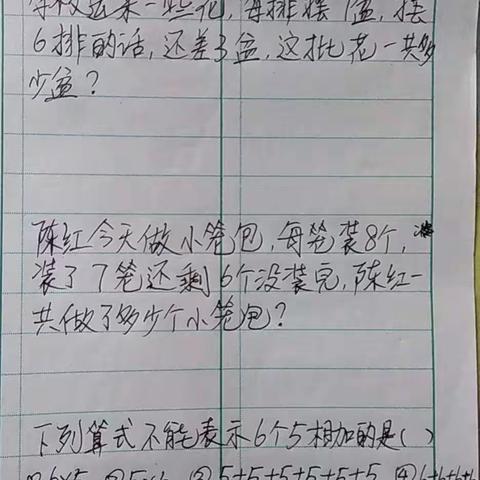 学校运来一些花,每排摆7盆,摆
6排的话,还差3盆,这批花一共多
少盆?
陈红今天做小笼包,每笼装8个,
装了7笼还剩6个没装完,陈红一
共做了多少个小笼包?
下列算式不能表示6个5相加的是( )
①6×5 ②5×6 ③5+5+5+5+5+5 ④6+6+6+6